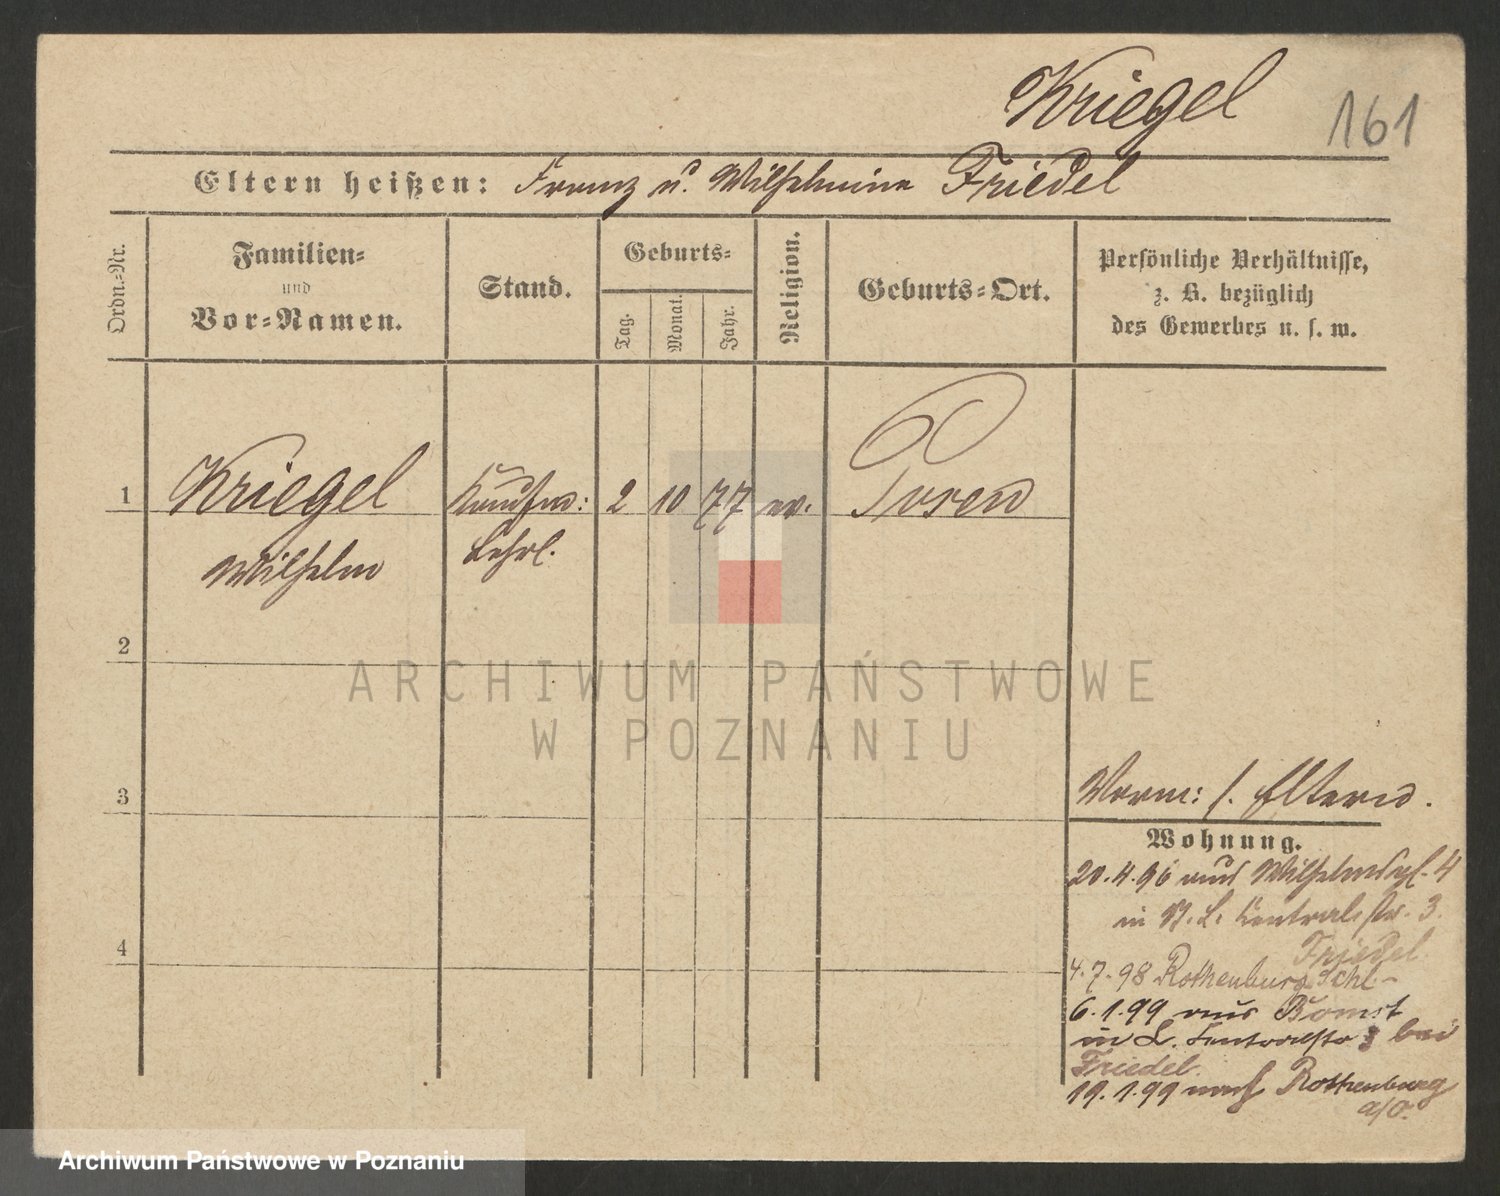 Kriegel
161
Eltern heißen: Franz u. Wilhelmine Friedel
Ordn.-Nr.
Familien-
und
Vor-Namen.
Stand.
Geburts-
Tag.
Monat.
Jahr.
Religion.
Geburts-Ort.
Persönliche Verhältnisse,
z. B. bezüglich
des Gewerbes u. s. w.
1
Kriegel
Wilhelm
Kaufm:
Lehrl.
2
10
77
ev.
Posen
2
3
4
Vorm: s. Eltern.
Wohnung.
20.4.96 aus Wilhelmspl. 4
in St. L. Centralstr. 3.
Friedel
4.7.98 Rothenburg Schl-
6.1.99 aus Bomst
in L. Centralstr 3 bei
Friedel
19.1.99 nach Rothenburg
a/O.
ARCHIWUM PAŃSTWOWE
W POZNANIU
Archiwum Państwowe w Poznaniu